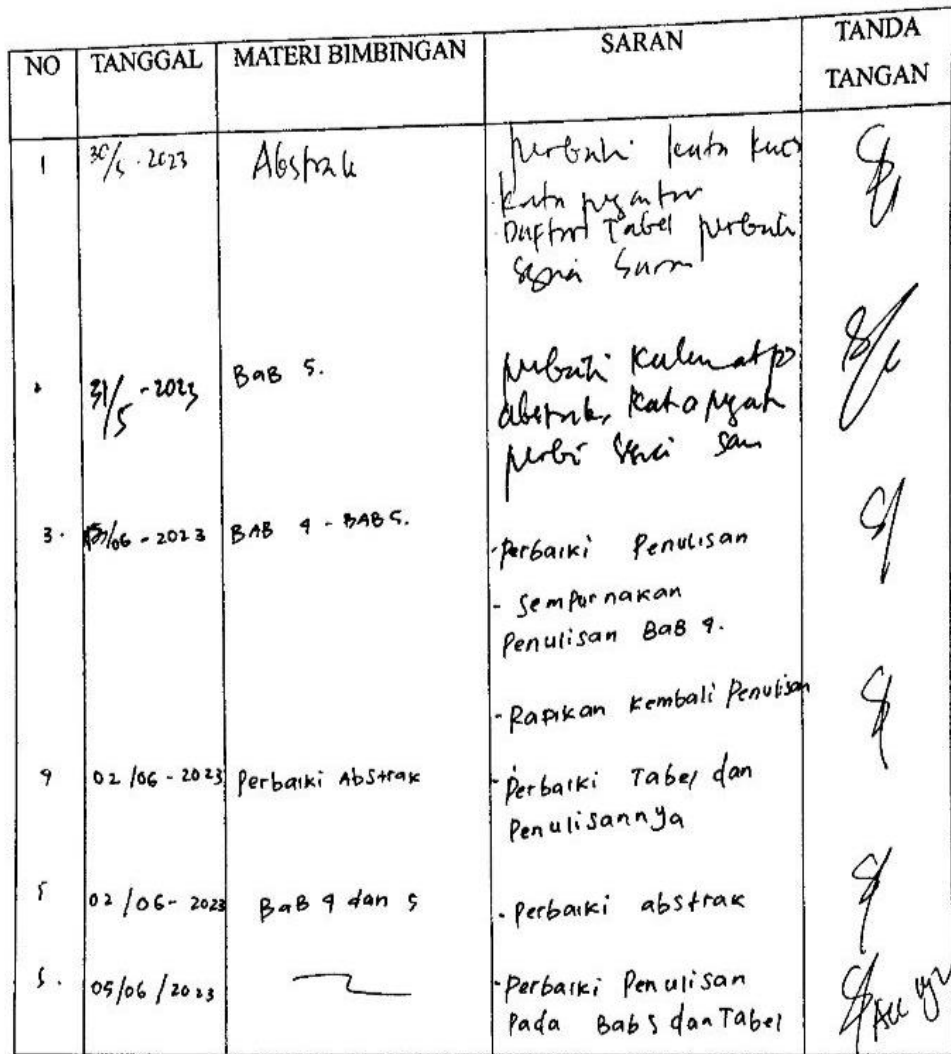 NO TANGGAL MATERI BIMBINGAN SARAN TANDA TANGAN
1 30/5 - 2023 Abstrak perbaiki kata kunci
kata pengantar
Daftar Tabel perbaiki
sesuai saran
31/5 - 2023 BaB 5. perbaiki
abstrak, kata
3. /06 - 2023 BAB 4 - BAB 5. - Perbaiki Penulisan
- Sempurnakan
Penulisan BaB 4.
- Rapikan kembali Penulisan
4 02/06 - 2023 Perbaiki Abstrak - Perbaiki Tabel dan
Penulisannya
5 02/06 - 2023 BaB 4 dan 5 - Perbaiki abstrak
05/06/2023 - Perbaiki Penulisan
Pada Bab 5 dan Tabel